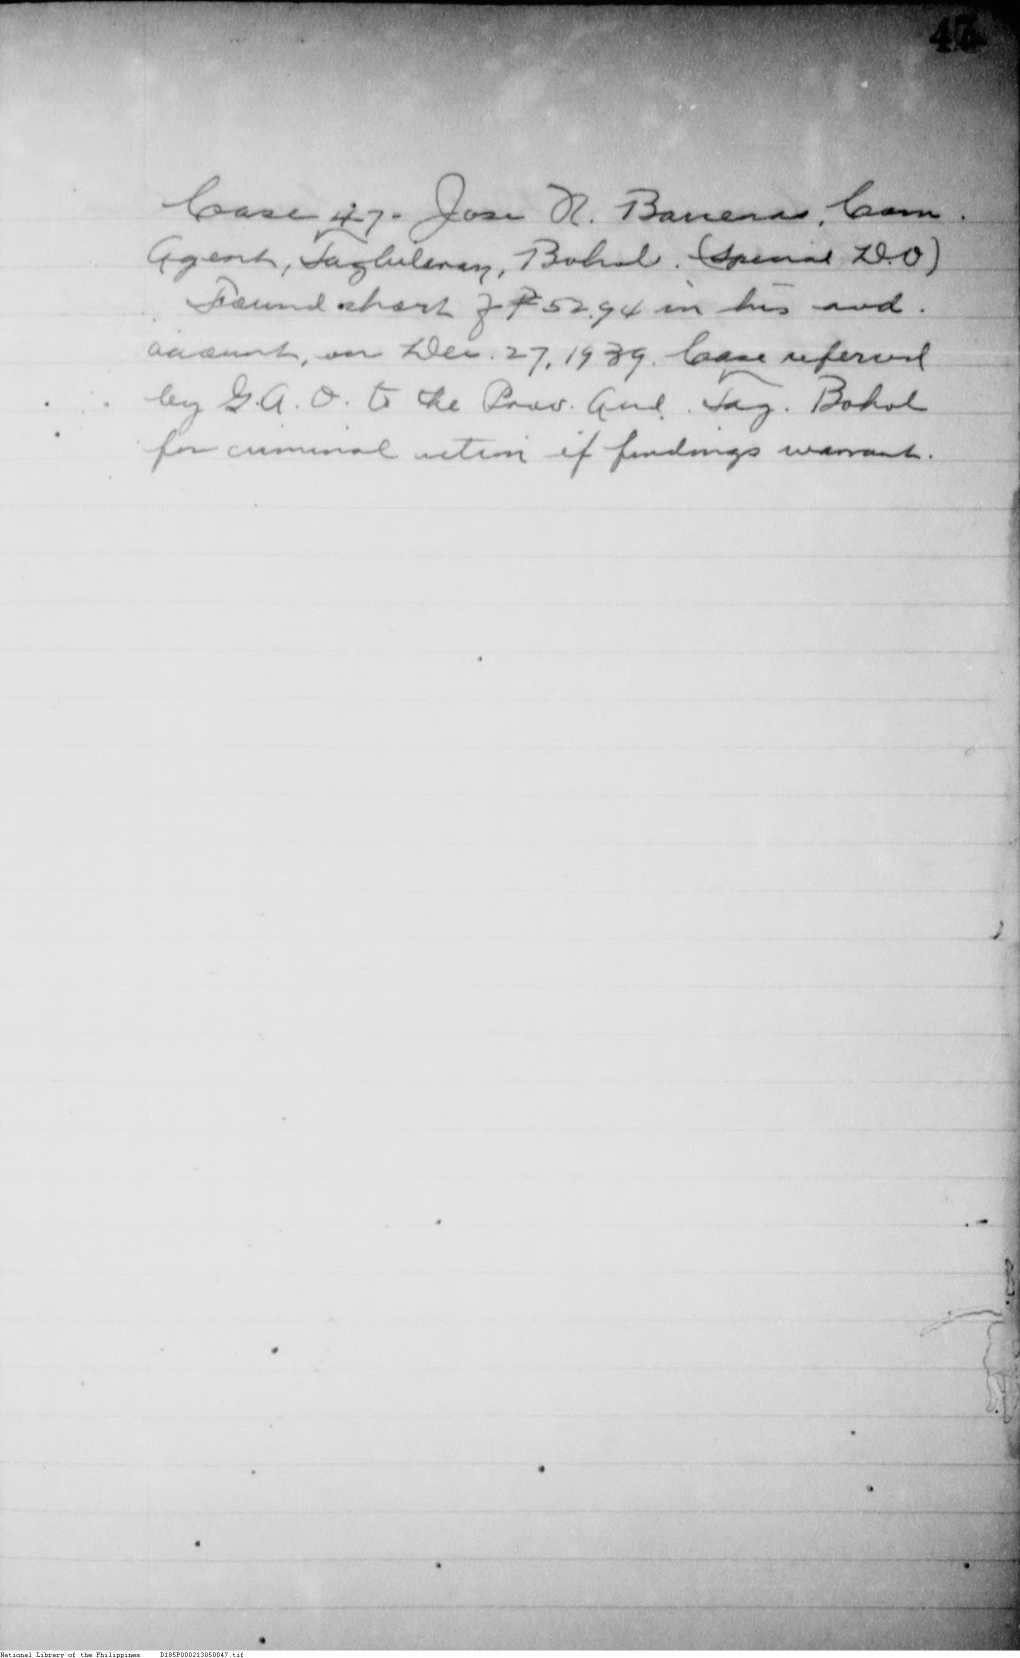 47
Case 47- Jose N. Barreras, Com.
Agent, Tagbilaran, Bohol. (Special D.O)
Found short of ₱52.94 in his
account, on Dec. 27, 1939. Case referred
by G.A.O. to the Prov. Aud. Tag. Bohol
for criminal action if findings warrant.
National Library of the Philippines D185P000213050047.tif